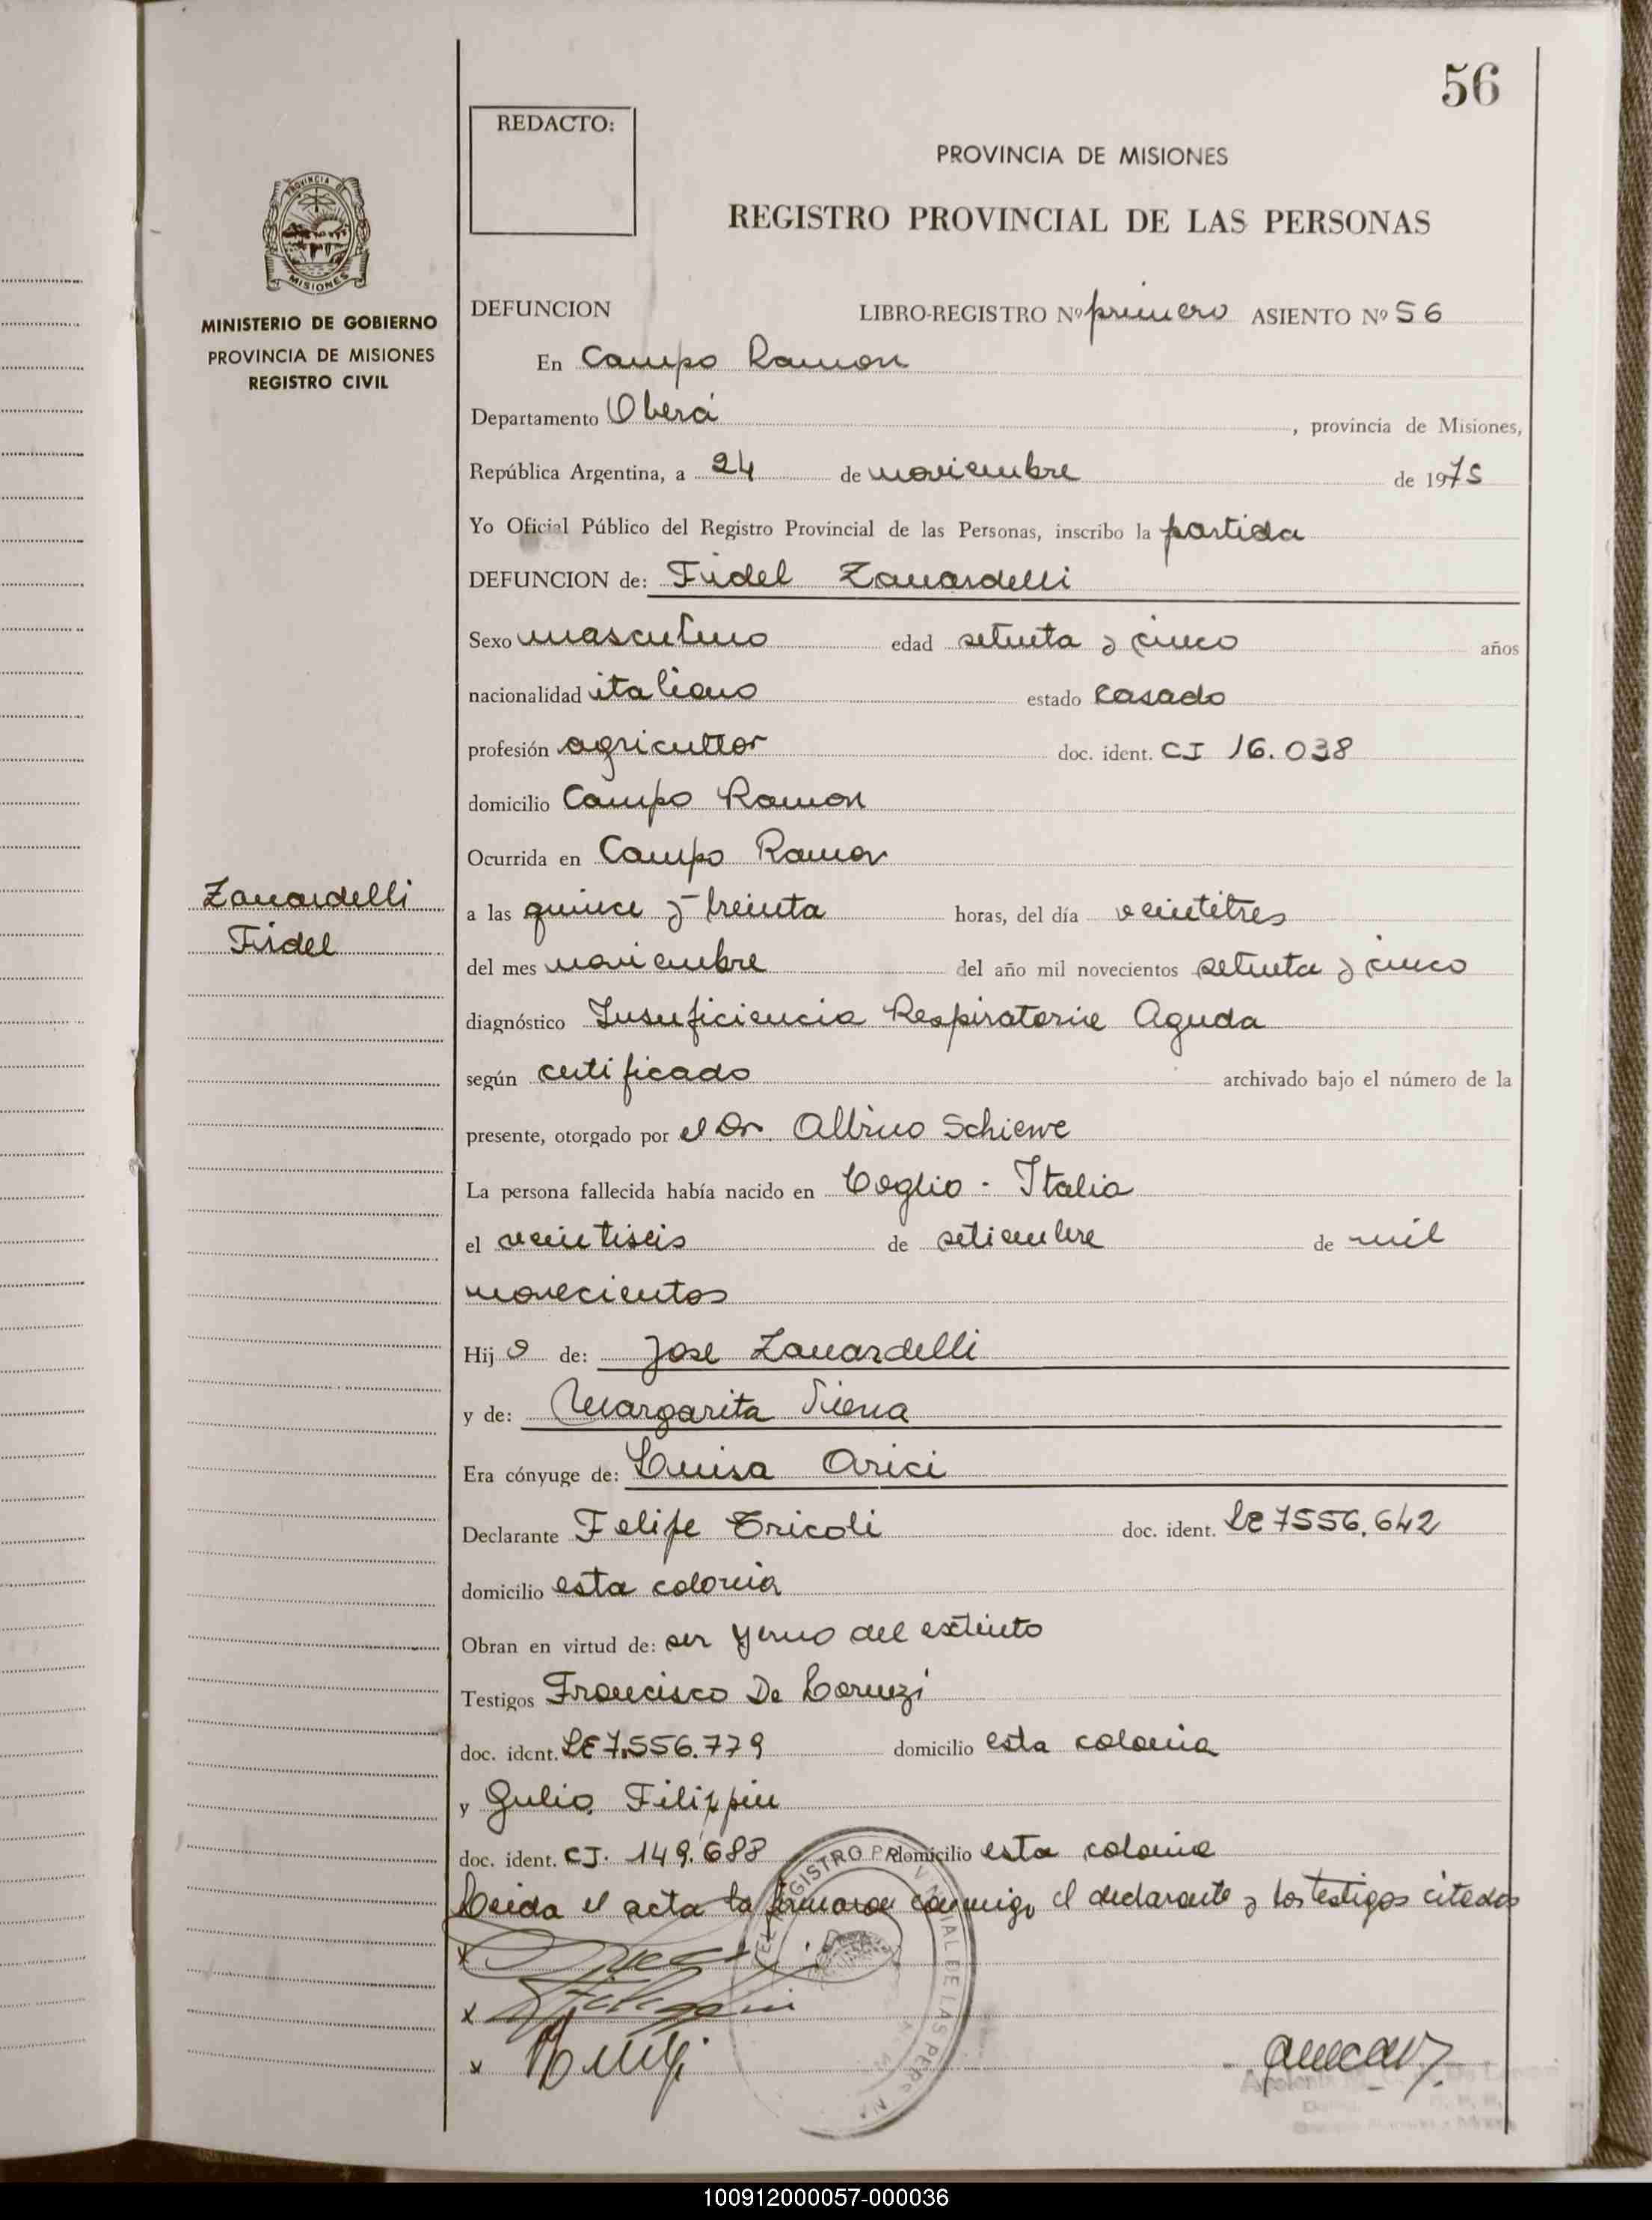 56
REDACTO:
PROVINCIA DE MISIONES
REGISTRO PROVINCIAL DE LAS PERSONAS
PROVINCIA DE
MISIONES
MINISTERIO DE GOBIERNO
PROVINCIA DE MISIONES
REGISTRO CIVIL
DEFUNCION LIBRO-REGISTRO Nº primero ASIENTO Nº 56
En Campo Ramon
Departamento Oberá , provincia de Misiones,
República Argentina, a 24 de noviembre de 1975
Yo Oficial Público del Registro Provincial de las Personas, inscribo la partida
DEFUNCION de: Fidel Zanardelli
Sexo masculino edad setenta y cinco años
nacionalidad italiano estado casado
profesión agricultor doc. ident. CI 16.038
domicilio Campo Ramon
Ocurrida en Campo Ramon
Zanardelli
Fidel
a las quince y treinta horas, del día veintitres
del mes noviembre del año mil novecientos setenta y cinco
diagnóstico Insuficiencia Respiratoria Aguda
según certificado archivado bajo el número de la
presente, otorgado por el Dr. Albino Schiewe
La persona fallecida había nacido en Coglio - Italia
el veintiseis de setiembre de mil
novecientos
Hijo de: Jose Zanardelli
y de: Margarita
Era cónyuge de: Luisa Arici
Declarante Felipe Tricoli doc. ident. LE 7556.642
domicilio esta colonia
Obran en virtud de: ser yerno del extinto
Testigos Francisco De Lorenzi
doc. ident. LE 7.556.779 domicilio esta colonia
y Gulio Filippin
doc. ident. CI. 149.688 domicilio esta colonia
Leida el acta la firmaron conmigo el declarante y los testigos citados
REGISTRO PROVINCIAL DE LAS PERSONAS
100912000057-000036